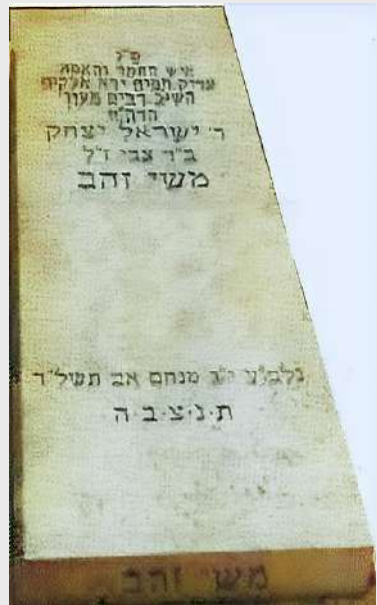 פ"נ
איש החסד והאמת
צדיק תמים ירא אלקים
השיב רבים מעון
הרה"ח
ר' ישראל יצחק
ב"ר צבי ז"ל
משי זהב
נלב"ע מנחם אב תשל"ד
ת.נ.צ.ב.ה
משי זהב